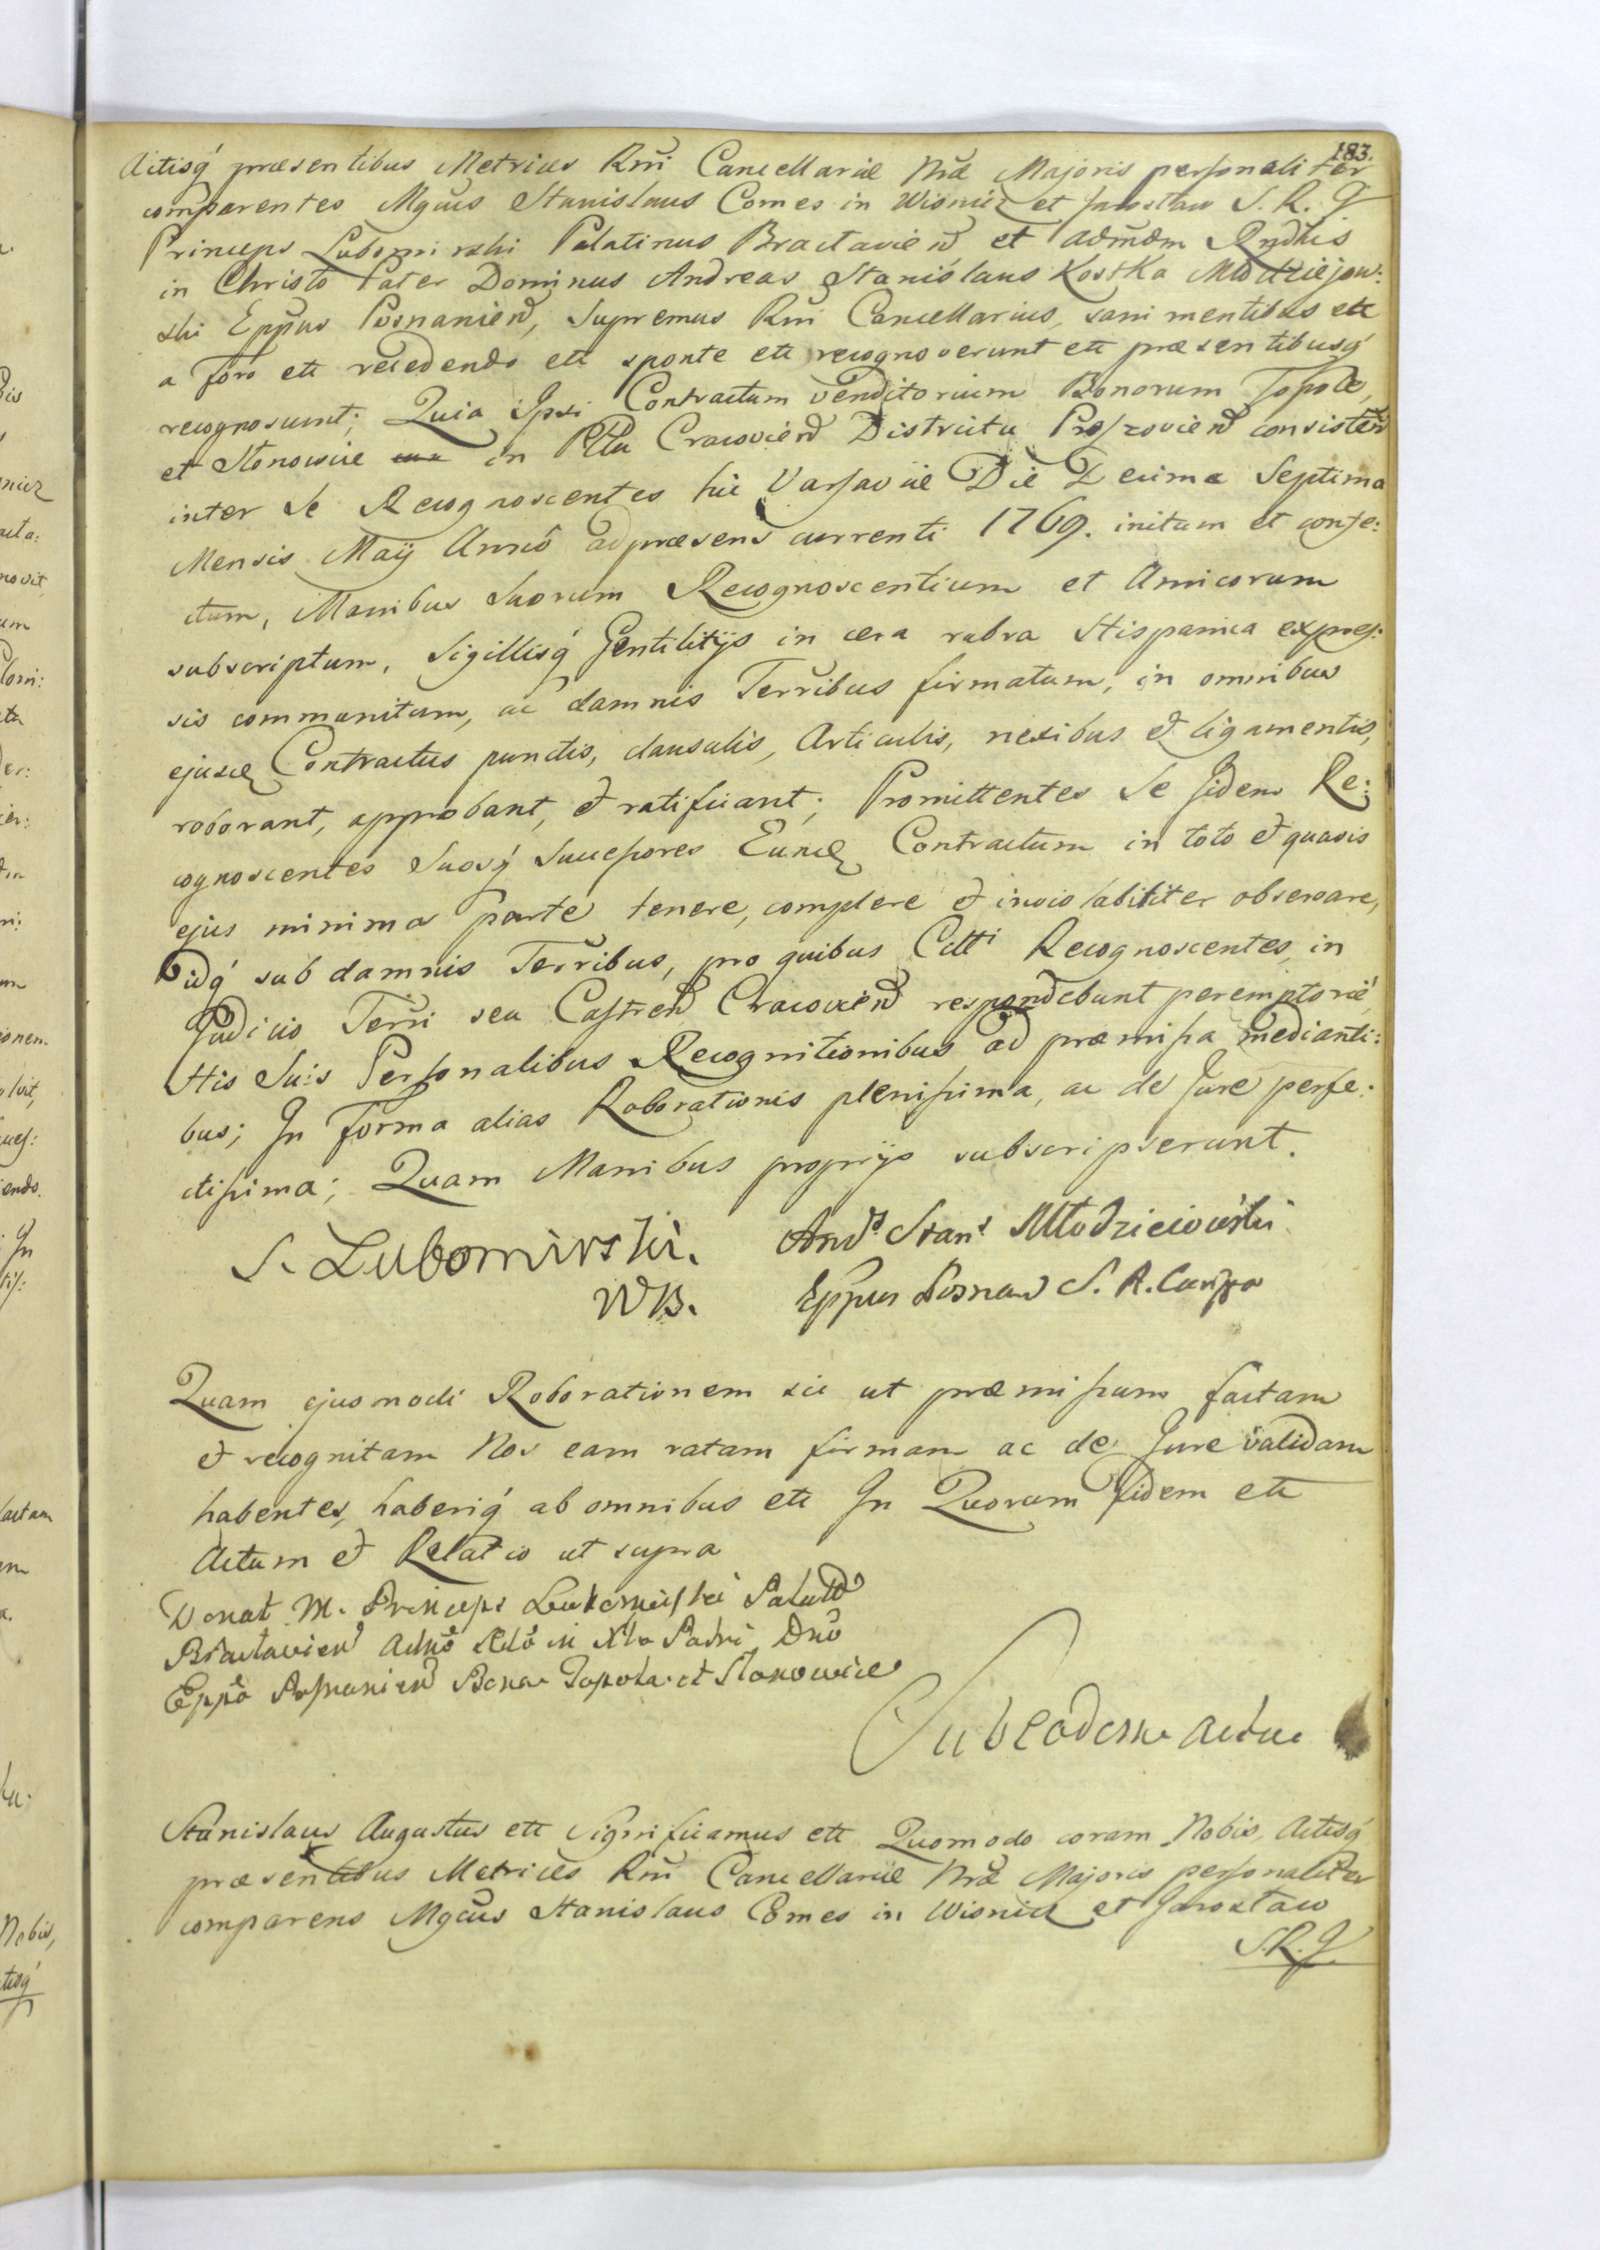 183.
Actisq́ præsentibus Metrices Rñi Cancellariæ Nræ Majoris personaliter
comparentes Mgcus Stanislaus Comes in Wisnicz et Jarosław S. R. J
Princeps Lubomirski Palatinus Bractavień et Admdm Rndus
in Christo Pater Dominus Andreas Stanislaus Kostka Młodziejow:
ski Eppus Posnanień, Supremus Rñi Cancellarius, sani mentibus ett
a foro ett recedendo ett sponte ett recognoverunt ett præsentibusq́
recognoscunt; Quia Ipsi Contractum Venditorium Bonorum Topole,
et Słonowice in Pltu Cracovień Districtu Proszovień consisteñ
inter se Recognoscentes hic Varsaviæ Die Decima Septima
Mensis Maÿ Anno adpræsens currenti 1769. initum et confe:
ctum, Manibus Suorum Recognoscentium et Amicorum
subscriptum, Sigillisq́ Gentilitÿs in cera rubra Hispanica expres:
sis communitum, ac damnis Terribus firmatum, in omnibus
ejusd Contractus punctis, clausulis, Articulis, nexibus et ligamentis,
roborant, approbant, et ratificant; Promittentes Se Jidem Re:
cognoscentes Suosq́ Successores Eund Contractum in toto et quavis
ejus minima parte tenere, complere et inviolabiliter observare,
idq́ sub damnis Terribus, pro quibus Citti Recognoscentes, in
Judicio Terri seu Castreń Cracovień respondebunt peremptorié
His Suis Personalibus Recognitionibus ad præmissa medianti:
bus; In forma alias Roborationis plenissima, ac de Jure perfe:
ctissima; Quam Manibus proprÿs subscripserunt.
S. Lubomirski. Andrs Stans Młodzieiowski
WB. Eppus Posnań S. R. Canss
Quam ejusmodi Roborationem sic ut præmissum factam
et recognitam Nos eam ratam firmam ac de Jure validam
habentes, haberiq́ ab omnibus ett In Quorum fidem ett
Actum et Relatio ut supra
Donat M. Princeps Lubomirski Palatt
Bractavień Admo Rdo in Xto Patri Dno
Eppo Posnanień Bona Topola et Słonowice
Sub eodem actu
Stanislaus Augustus ett Significamus ett Quomodo coram Nobis, Actisq́
præsentibus Metrices Rñi Cancellariæ Nræ Majoris personaliter
comparens Mgcus Stanislaus Comes in Wisnicz et Jarosław
S.R.J